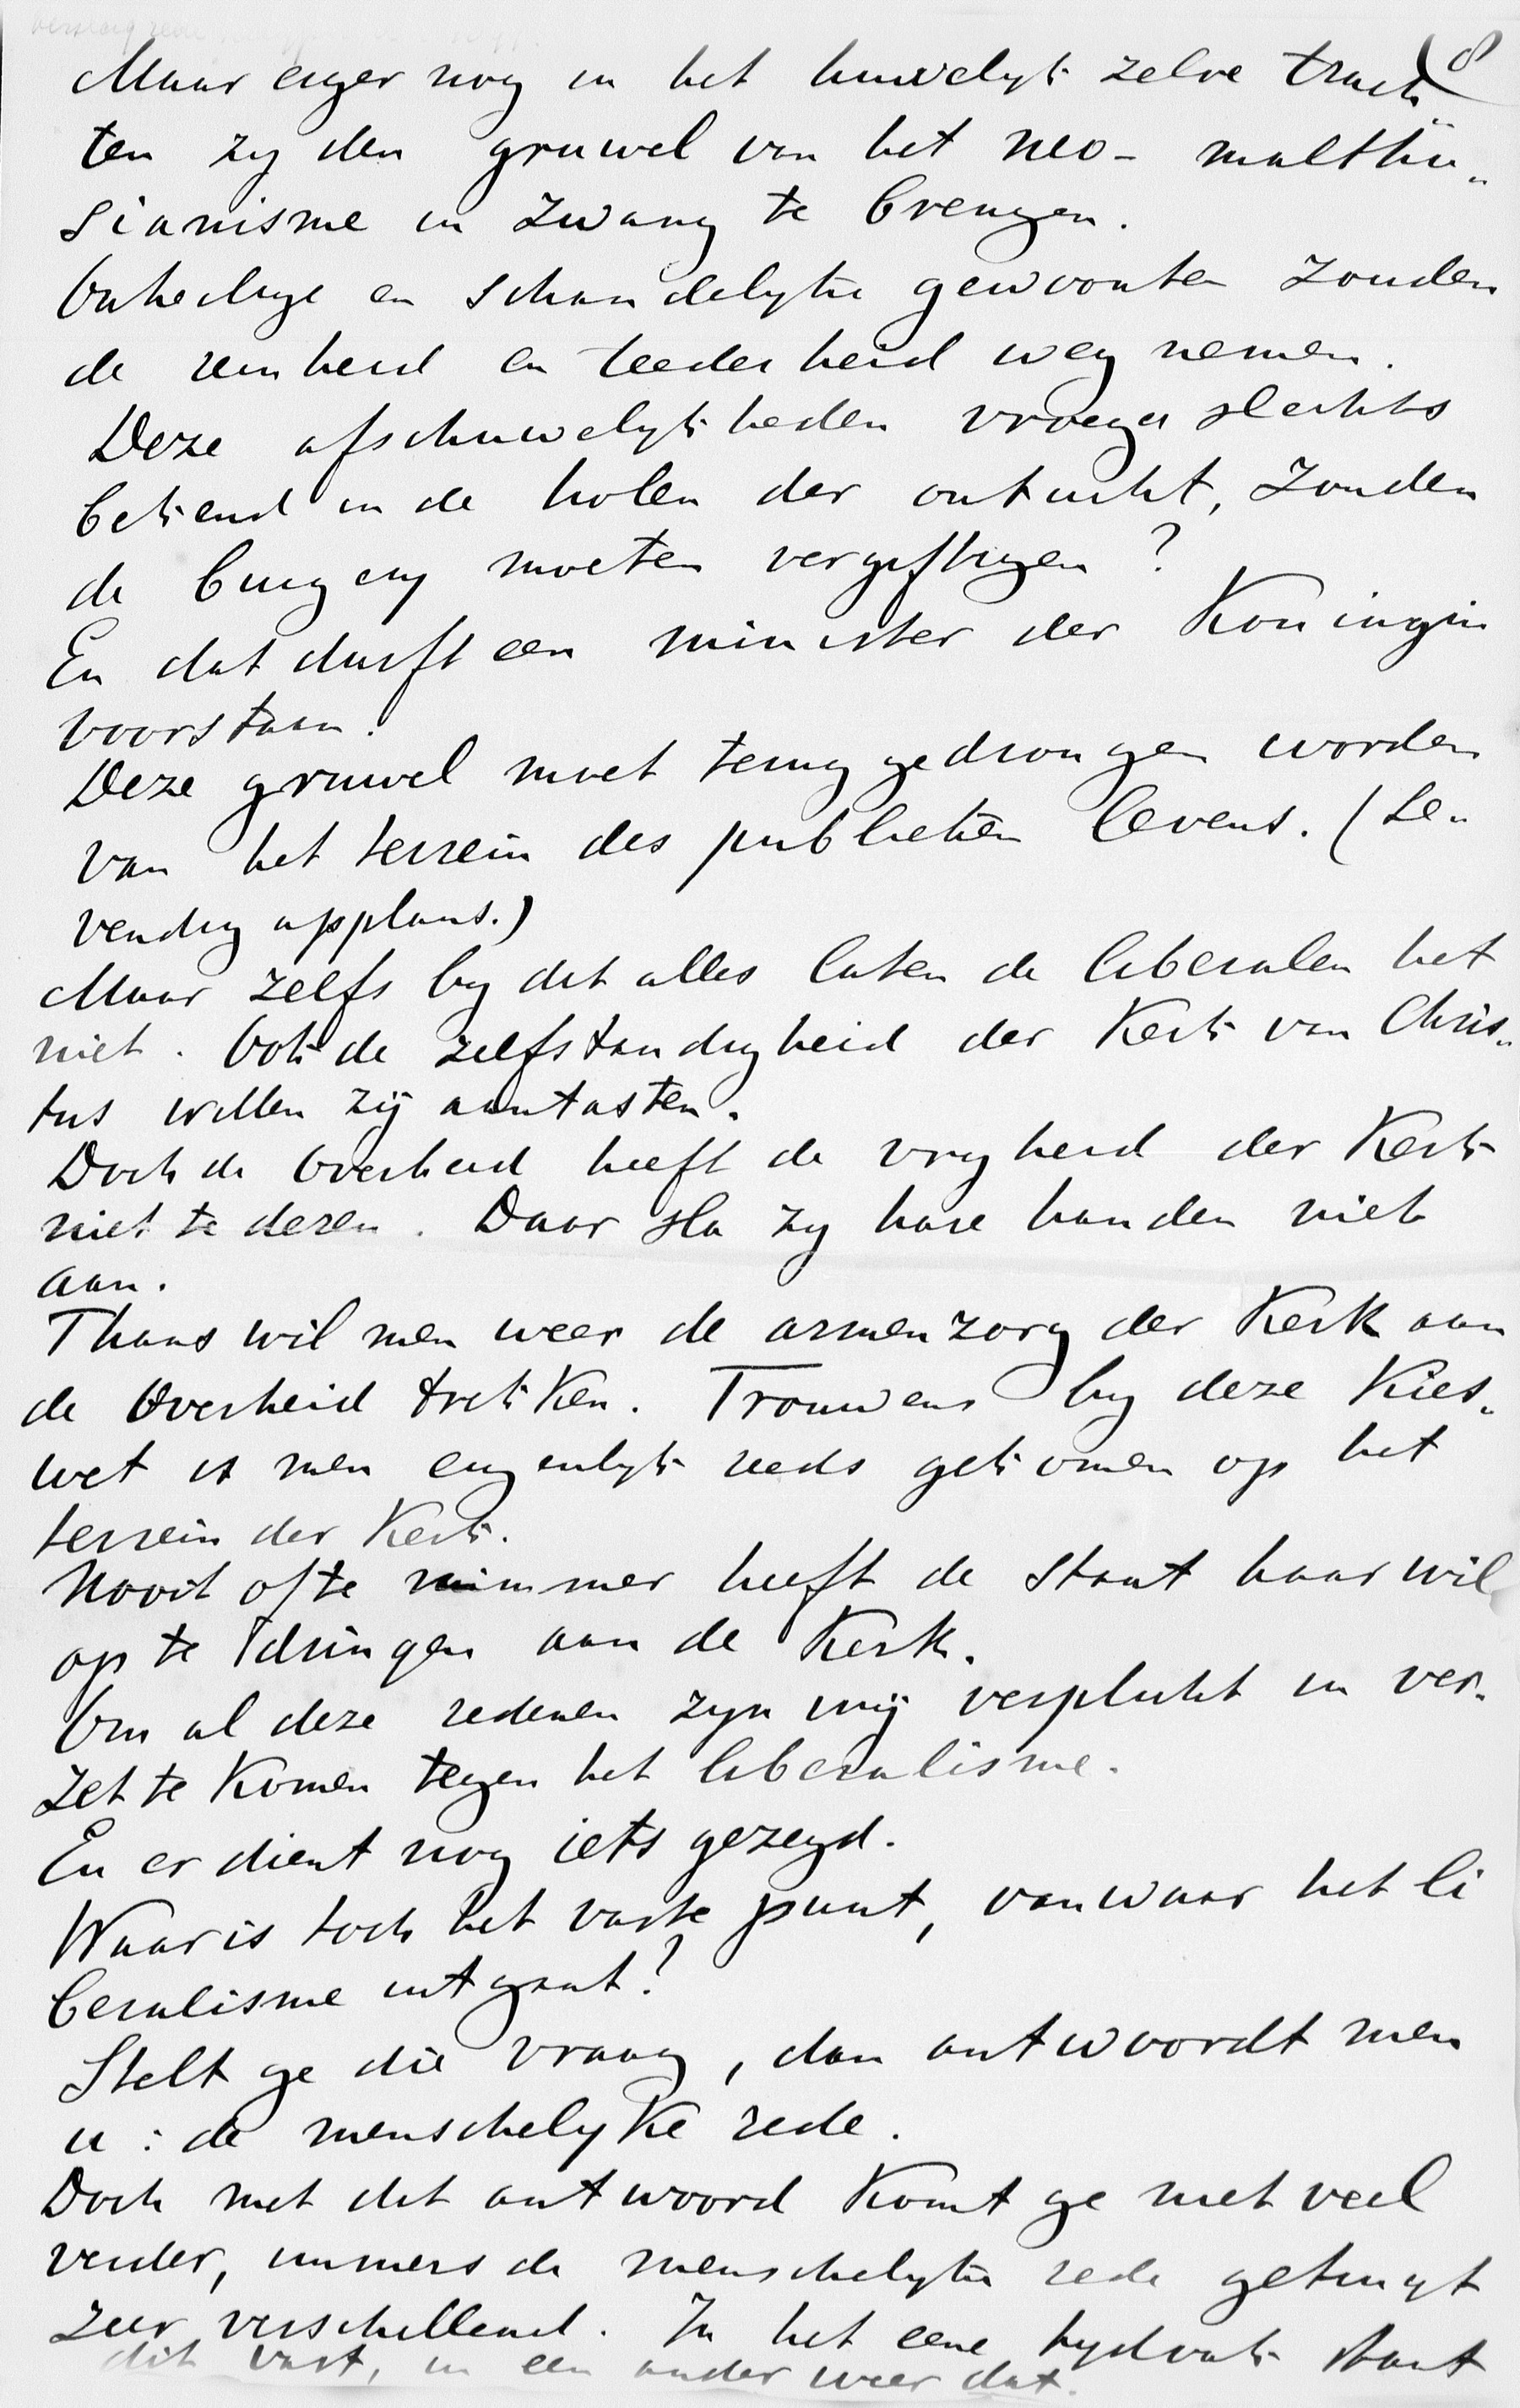 8
Maar erger nog in het huwelyk zelve trach
ten zy den gruwel van het neo-malthu„
sianisme in zwang te brengen.
Onheilige en schandelyke gewoonten zouden
de reinheid en teederheid weg nemen.
Deze afschuwelykheden vroeger slechts
bekend in de holen der ontucht, zouden
de burgerij moeten vergiftigen?
En dat durft een minister der Koningin
voorstaan!
Deze gruwel moet terug gedrongen worden
van het terrein des publieken levens. (Le„
vendig applaus.)
Maar zelfs by dit alles laten de liberalen het
niet. Ook de zelfstandigheid der Kerk van Chris„
tus willen zij aantasten.
Doch de Overheid heeft de vryheid der Kerk
niet te deren. Daar sla zy hare handen niet
aan.
Thans wil men weer de armenzorg der Kerk aan
de Overheid trekken. Trouwens by deze Kies„
wet is men eigenlyk reeds gekomen op het
terrein der Kerk.
Nooit ofte nimmer heeft de Staat haar wil
op te dringen aan de Kerk.
Om al deze redenen zyn wij verplicht in ver„
zet te Komen tegen het liberalisme.
En er dient nog iets gezegd.
Waar is toch het vaste punt, vanwaar het li
beralisme uitgaat?
Stelt ge die vraag, dan antwoordt men
u: de menschelyke rede.
Doch met dit antwoord Komt ge niet veel
verder, immers de menschelyke rede getuigt
zeer verschillend. In het eene tydvak staat
dit vast, in een ander weer dat.